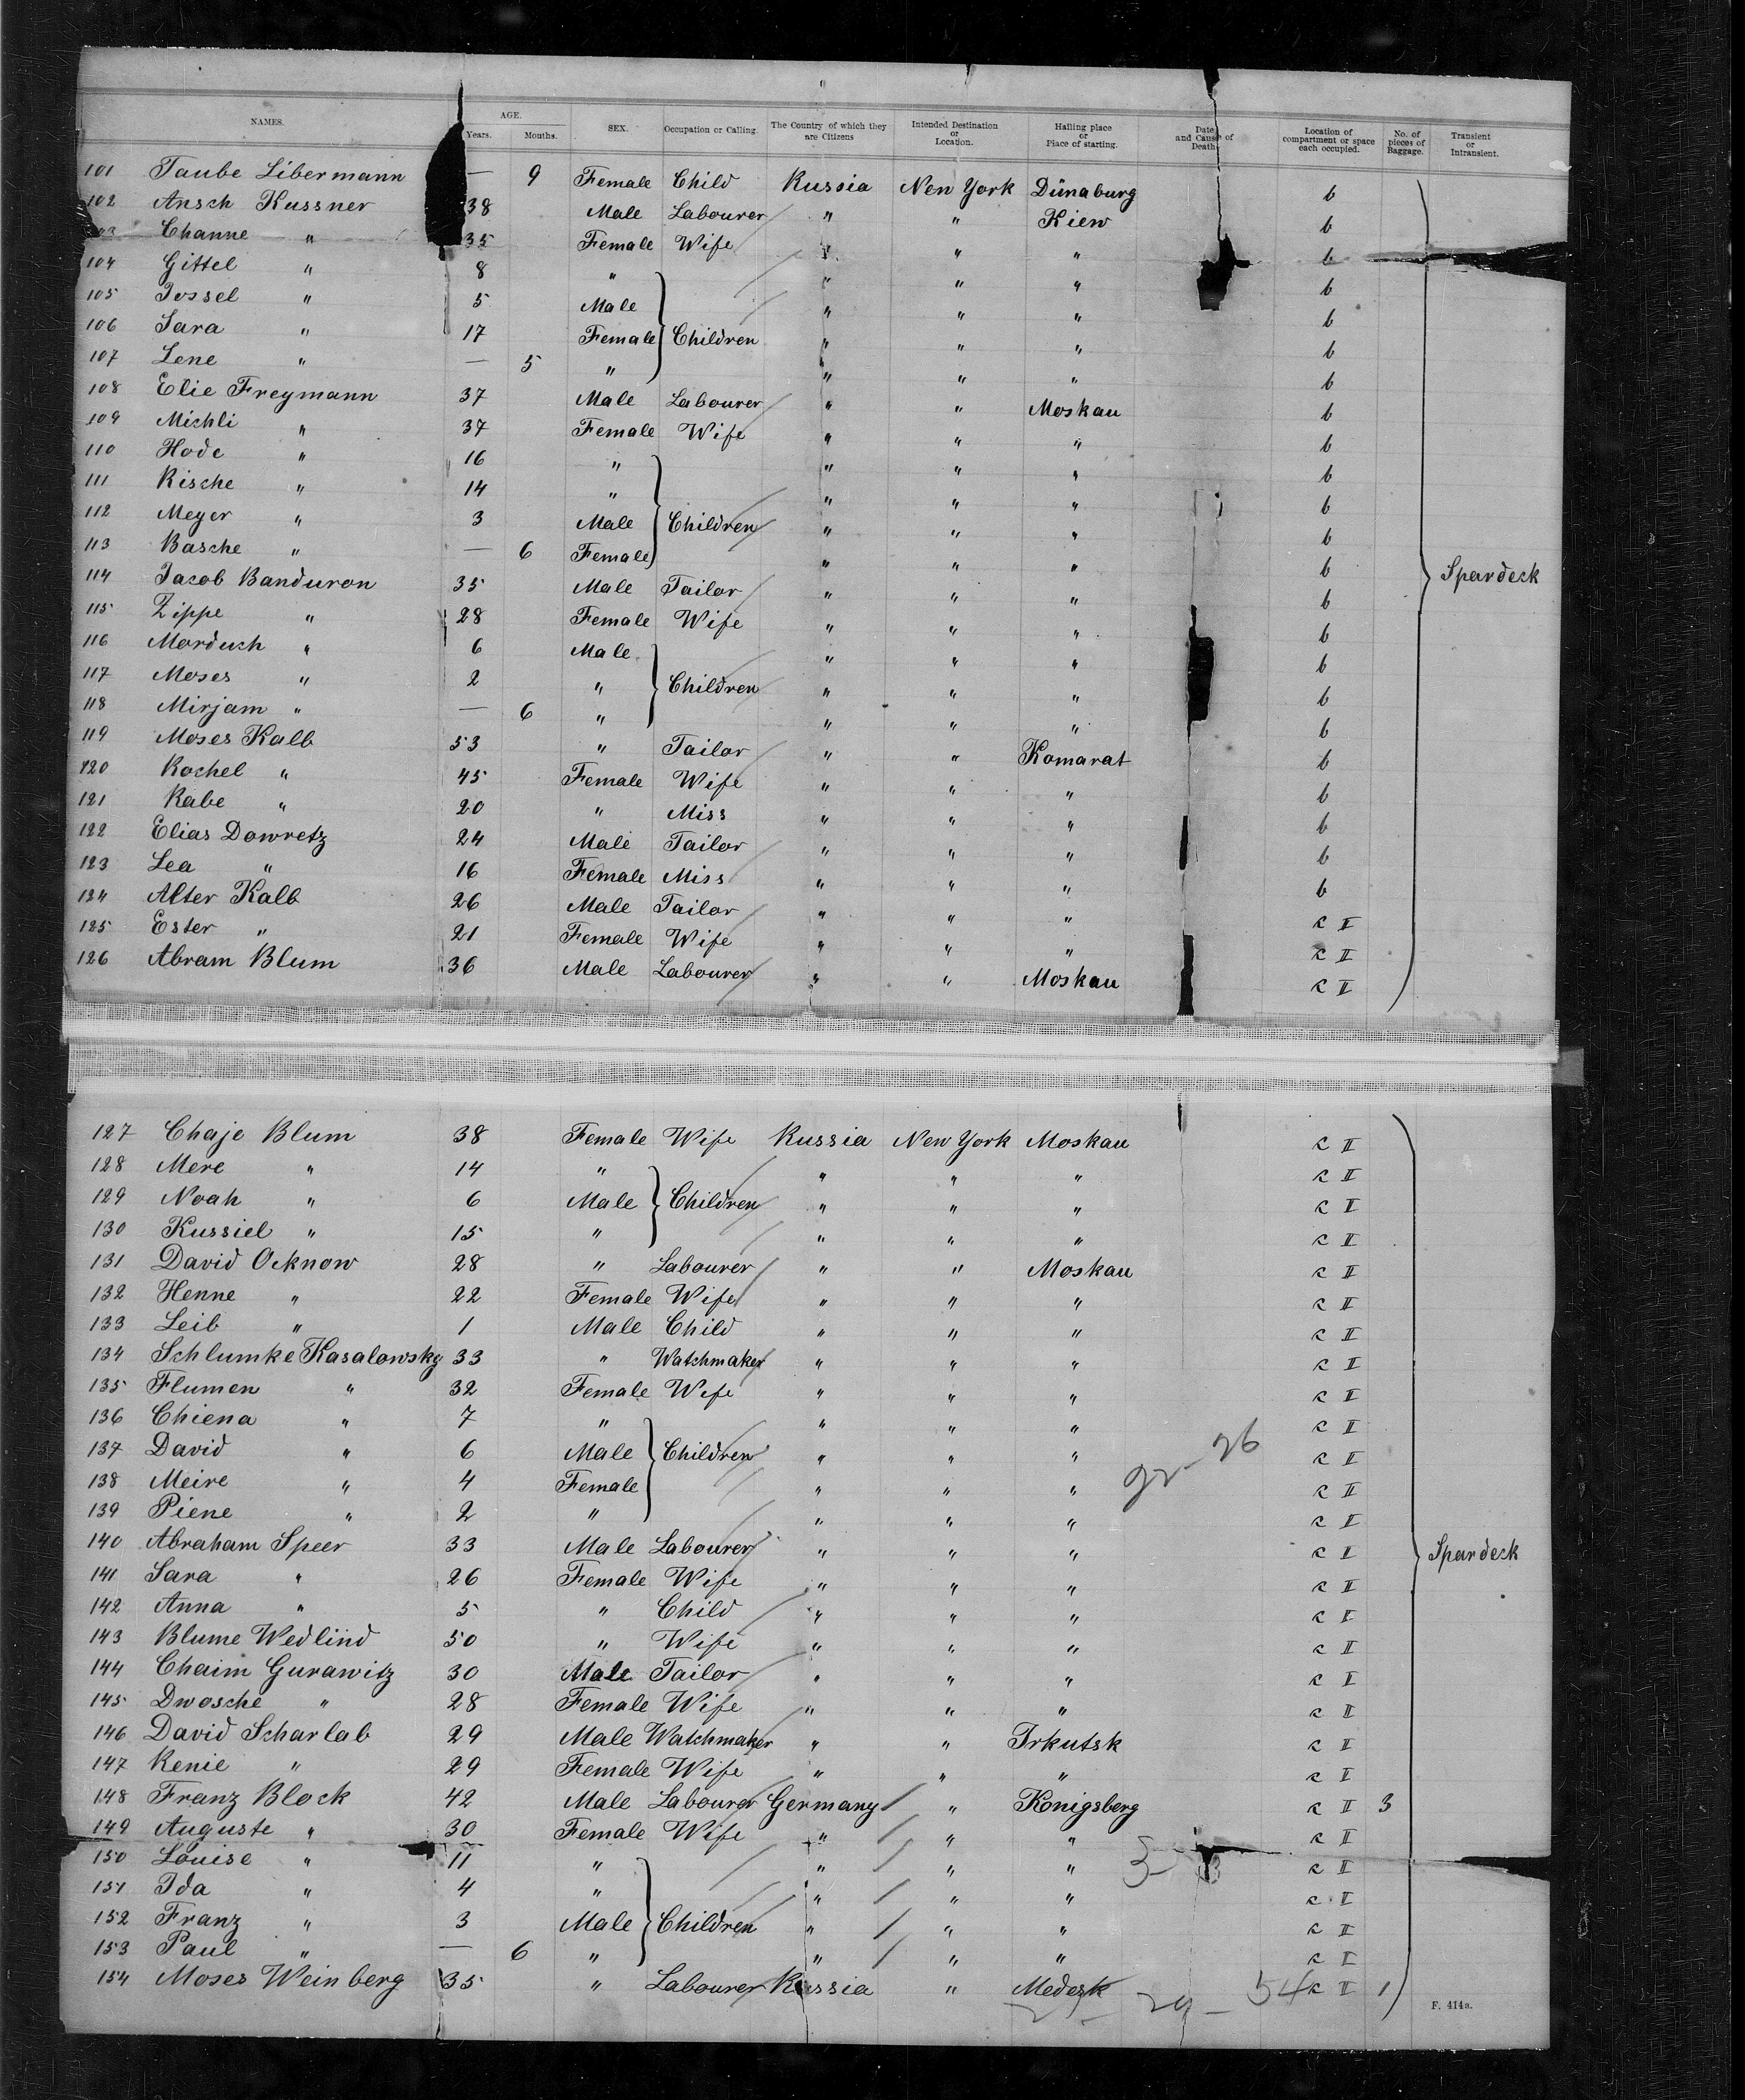 NAMES. AGE. Years. Months. SEX. Occupation or Calling. The Country of which they are Citizens Intended Destination or Location. Hailing place or Place of starting. Date and Cause of Death Location of compartment or space each occupied. No. of pieces of Baggage. Transient or Intransient.
101 Taube Libermann — 9 Female Child Russia New York Dünaburg b
102 Ansch Kussner 38 Male Labourer " " Kiew b
103 Channe " 35 Female Wife " " " b
104 Gittel " 8 " " " " b
105 Jossel " 5 Male " " " b
106 Sara " 17 Female Children " " " b
107 Lene " — 5 " " " " b
108 Elie Freymann 37 Male Labourer " " Moskau b
109 Michli " 37 Female Wife " " " b
110 Hode " 16 " " " " b
111 Rische " 14 " " " " b
112 Meyer " 3 Male Children " " " b
113 Basche " — 6 Female " " " b Spardeck
114 Jacob Banduron 35 Male Tailor " " " b
115 Zippe " 28 Female Wife " " " b
116 Morduch " 6 Male " " " b
117 Moses " 2 " Children " " " b
118 Mirjam " — 6 " " " " b
119 Moses Kalb 53 " Tailor " " Komarat b
120 Rochel " 45 Female Wife " " " b
121 Rabe " 20 " Miss " " " b
122 Elias Dowretz 24 Male Tailor " " " b
123 Lea " 16 Female Miss " " " b
124 Alter Kalb 26 Male Tailor " " " R II
125 Ester " 21 Female Wife " " " R II
126 Abram Blum 36 Male Labourer " " Moskau R II
127 Chaje Blum 38 Female Wife Russia New York Moskau R II
128 Mere " 14 " " " " R II
129 Noah " 6 Male Children " " " R II
130 Kussiel " 15 " " " " R II
131 David Ocknow 28 " Labourer " " Moskau R II
132 Henne " 22 Female Wife " " " R II
133 Leib " 1 Male Child " " " R II
134 Schlumke Kasalowsky 33 " Watchmaker " " " R II
135 Flumen " 32 Female Wife " " " R II
136 Chiena " 7 " " " " R II
137 David " 6 Male Children " " " 26 R II
138 Meire " 4 Female " " " R II
139 Piene " 2 " " " " R II
140 Abraham Speer 33 Male Labourer " " " R II Spardeck
141 Sara " 26 Female Wife " " " R II
142 Anna " 5 " Child " " " R II
143 Blume Wedlind 50 " Wife " " " R II
144 Chaim Gurawitz 30 Male Tailor " " " R II
145 Dwosche " 28 Female Wife " " " R II
146 David Scharlab 29 Male Watchmaker " " Irkutsk R II
147 Renie " 29 Female Wife " " " R II
148 Franz Block 42 Male Labourer Germany " Königsberg R II 3
149 Auguste " 30 Female Wife " " " R II
150 Louise " 11 " " " " R II
151 Ida " 4 " " " " R II
152 Franz " 3 Male Children " " " R II
153 Paul " — 6 " " " " R II
154 Moses Weinberg 35 " Labourer Russia " Medesk 54 R II 1
F. 414a.